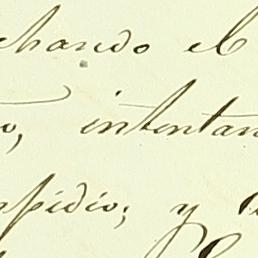 chando el
o, intentan
spidio; y